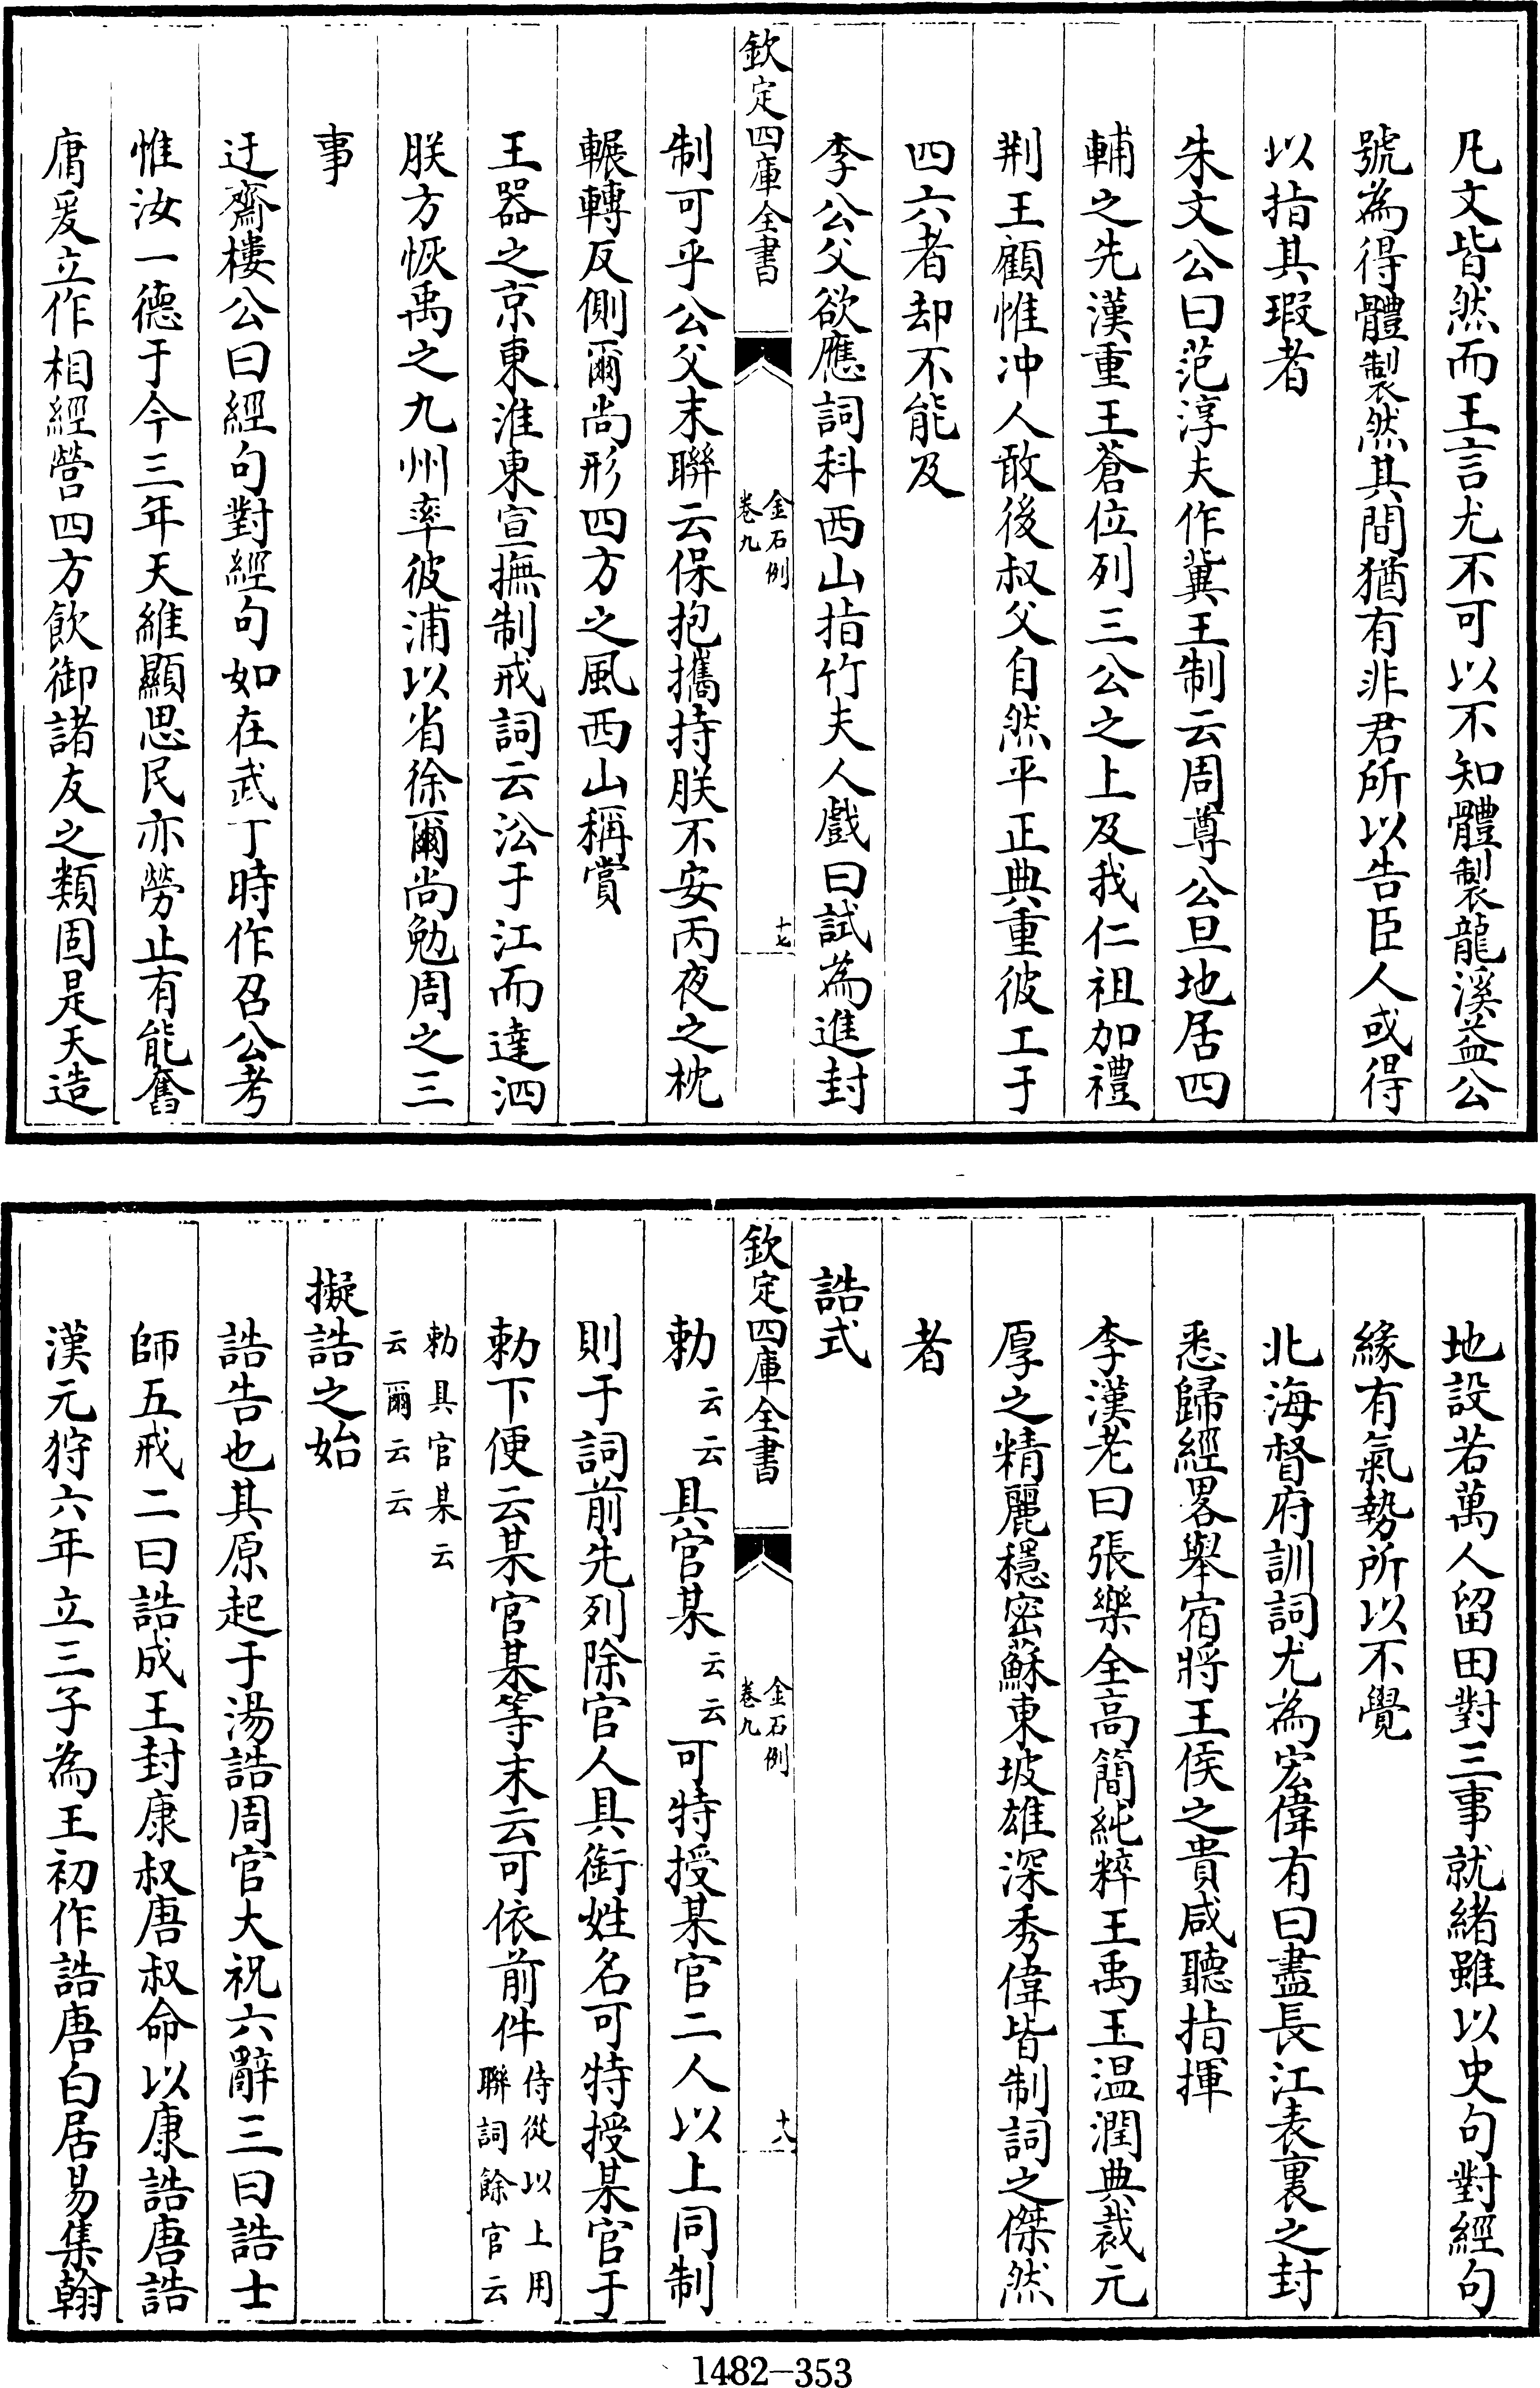 凡文皆然而王言尤不可以不知體製龍溪益公
號為得體製然其間猶有非君所以告臣人或得
以指其瑕者
朱文公曰范淳夫作冀王制云周尊公旦地居四
輔之先漢重王蒼位列三公之上及我仁祖加禮
荆王顧惟冲人敢後叔父自然平正典重彼工于
四六者却不能及
李公父欲應詞科西山指竹夫人戲曰試為進封
欽定四庫全書
金石例
卷九
十七
制可乎公父末聯云保抱攜持朕不安丙夜之枕
輾轉反側爾尚形四方之風西山稱賞
王器之京東淮東宣撫制戒詞云㳂于江而達泗
朕方恢禹之九州率彼浦以省徐爾尚勉周之三
事
迂齋樓公曰經句對經句如在武丁時作召公考
惟汝一德于今三年天維顯思民亦勞止有能奮
庸爰立作相經營四方飲御諸友之類固是天造
地設若萬人留田對三事就緒雖以史句對經句
緣有氣勢所以不覺
北海督府訓詞尤為宏偉有曰盡長江表裏之封
悉歸經畧舉宿將王侯之貴咸聽指揮
李漢老曰張樂全高簡純粹王禹玉温潤典裁元
厚之精麗穩密蘇東坡雄深秀偉皆制詞之傑然
者
誥式
欽定四庫全書
金石例
卷九
十八
勅云云具官某云云可特授某官二人以上同制
則于詞前先列除官人具銜姓名可特授某官于
勅下便云某官某等末云可依前件侍從以上用
聯詞餘官云
勅具官某云
云爾云云
擬誥之始
誥告也其原起于湯誥周官大祝六辭三曰誥士
師五戒二曰誥成王封康叔唐叔命以康誥唐誥
漢元狩六年立三子為王初作誥唐白居易集翰
1482-353